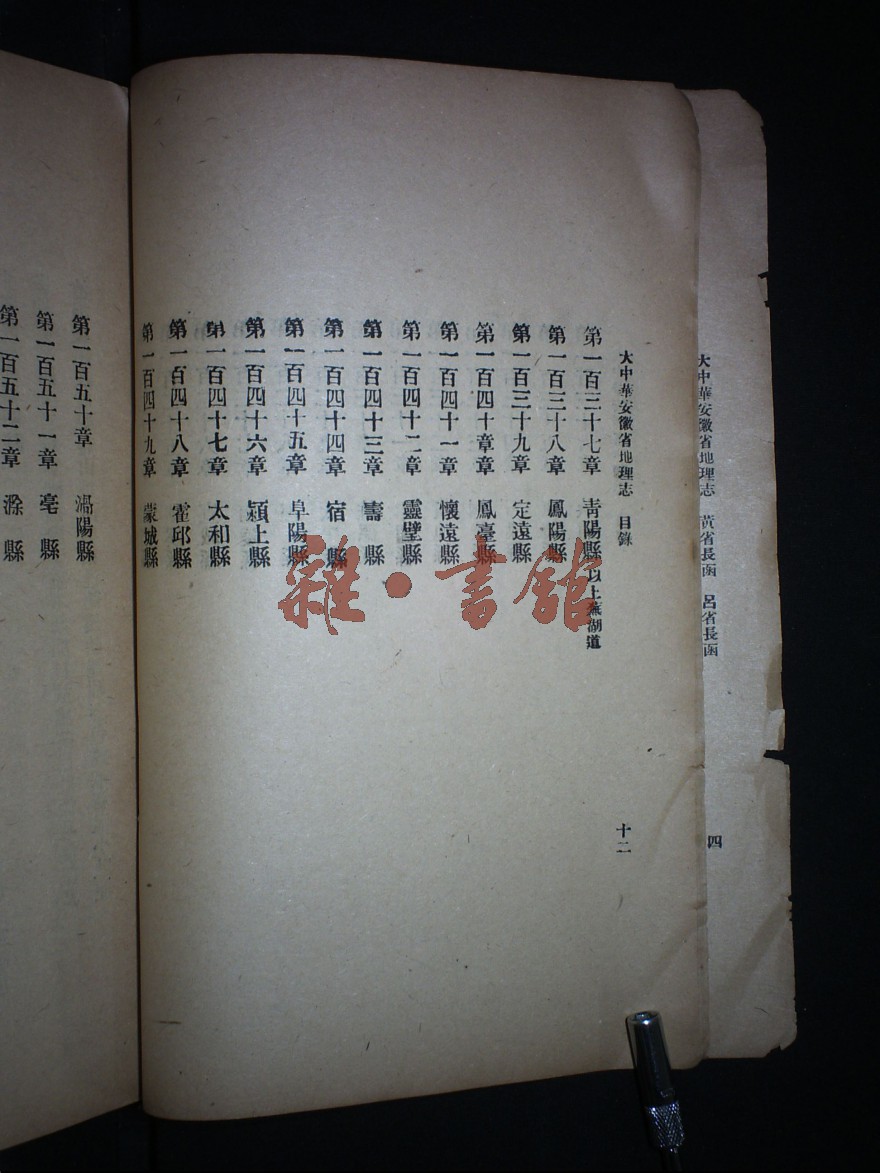 大中華安徽省地理志　黃省長函　呂省長函
四
大中華安徽省地理志　目錄
十二
第一百三十七章　青陽縣以上蕪湖道
第一百三十八章　鳳陽縣
第一百三十九章　定遠縣
第一百四十章　鳳臺縣
第一百四十一章　懷遠縣
第一百四十二章　靈璧縣
第一百四十三章　壽　縣
第一百四十四章　宿　縣
第一百四十五章　阜陽縣
第一百四十六章　潁上縣
第一百四十七章　太和縣
第一百四十八章　霍邱縣
第一百四十九章　蒙城縣
第一百五十章　渦陽縣
第一百五十一章　亳　縣
第一百五十二章　滁　縣
雜·書館